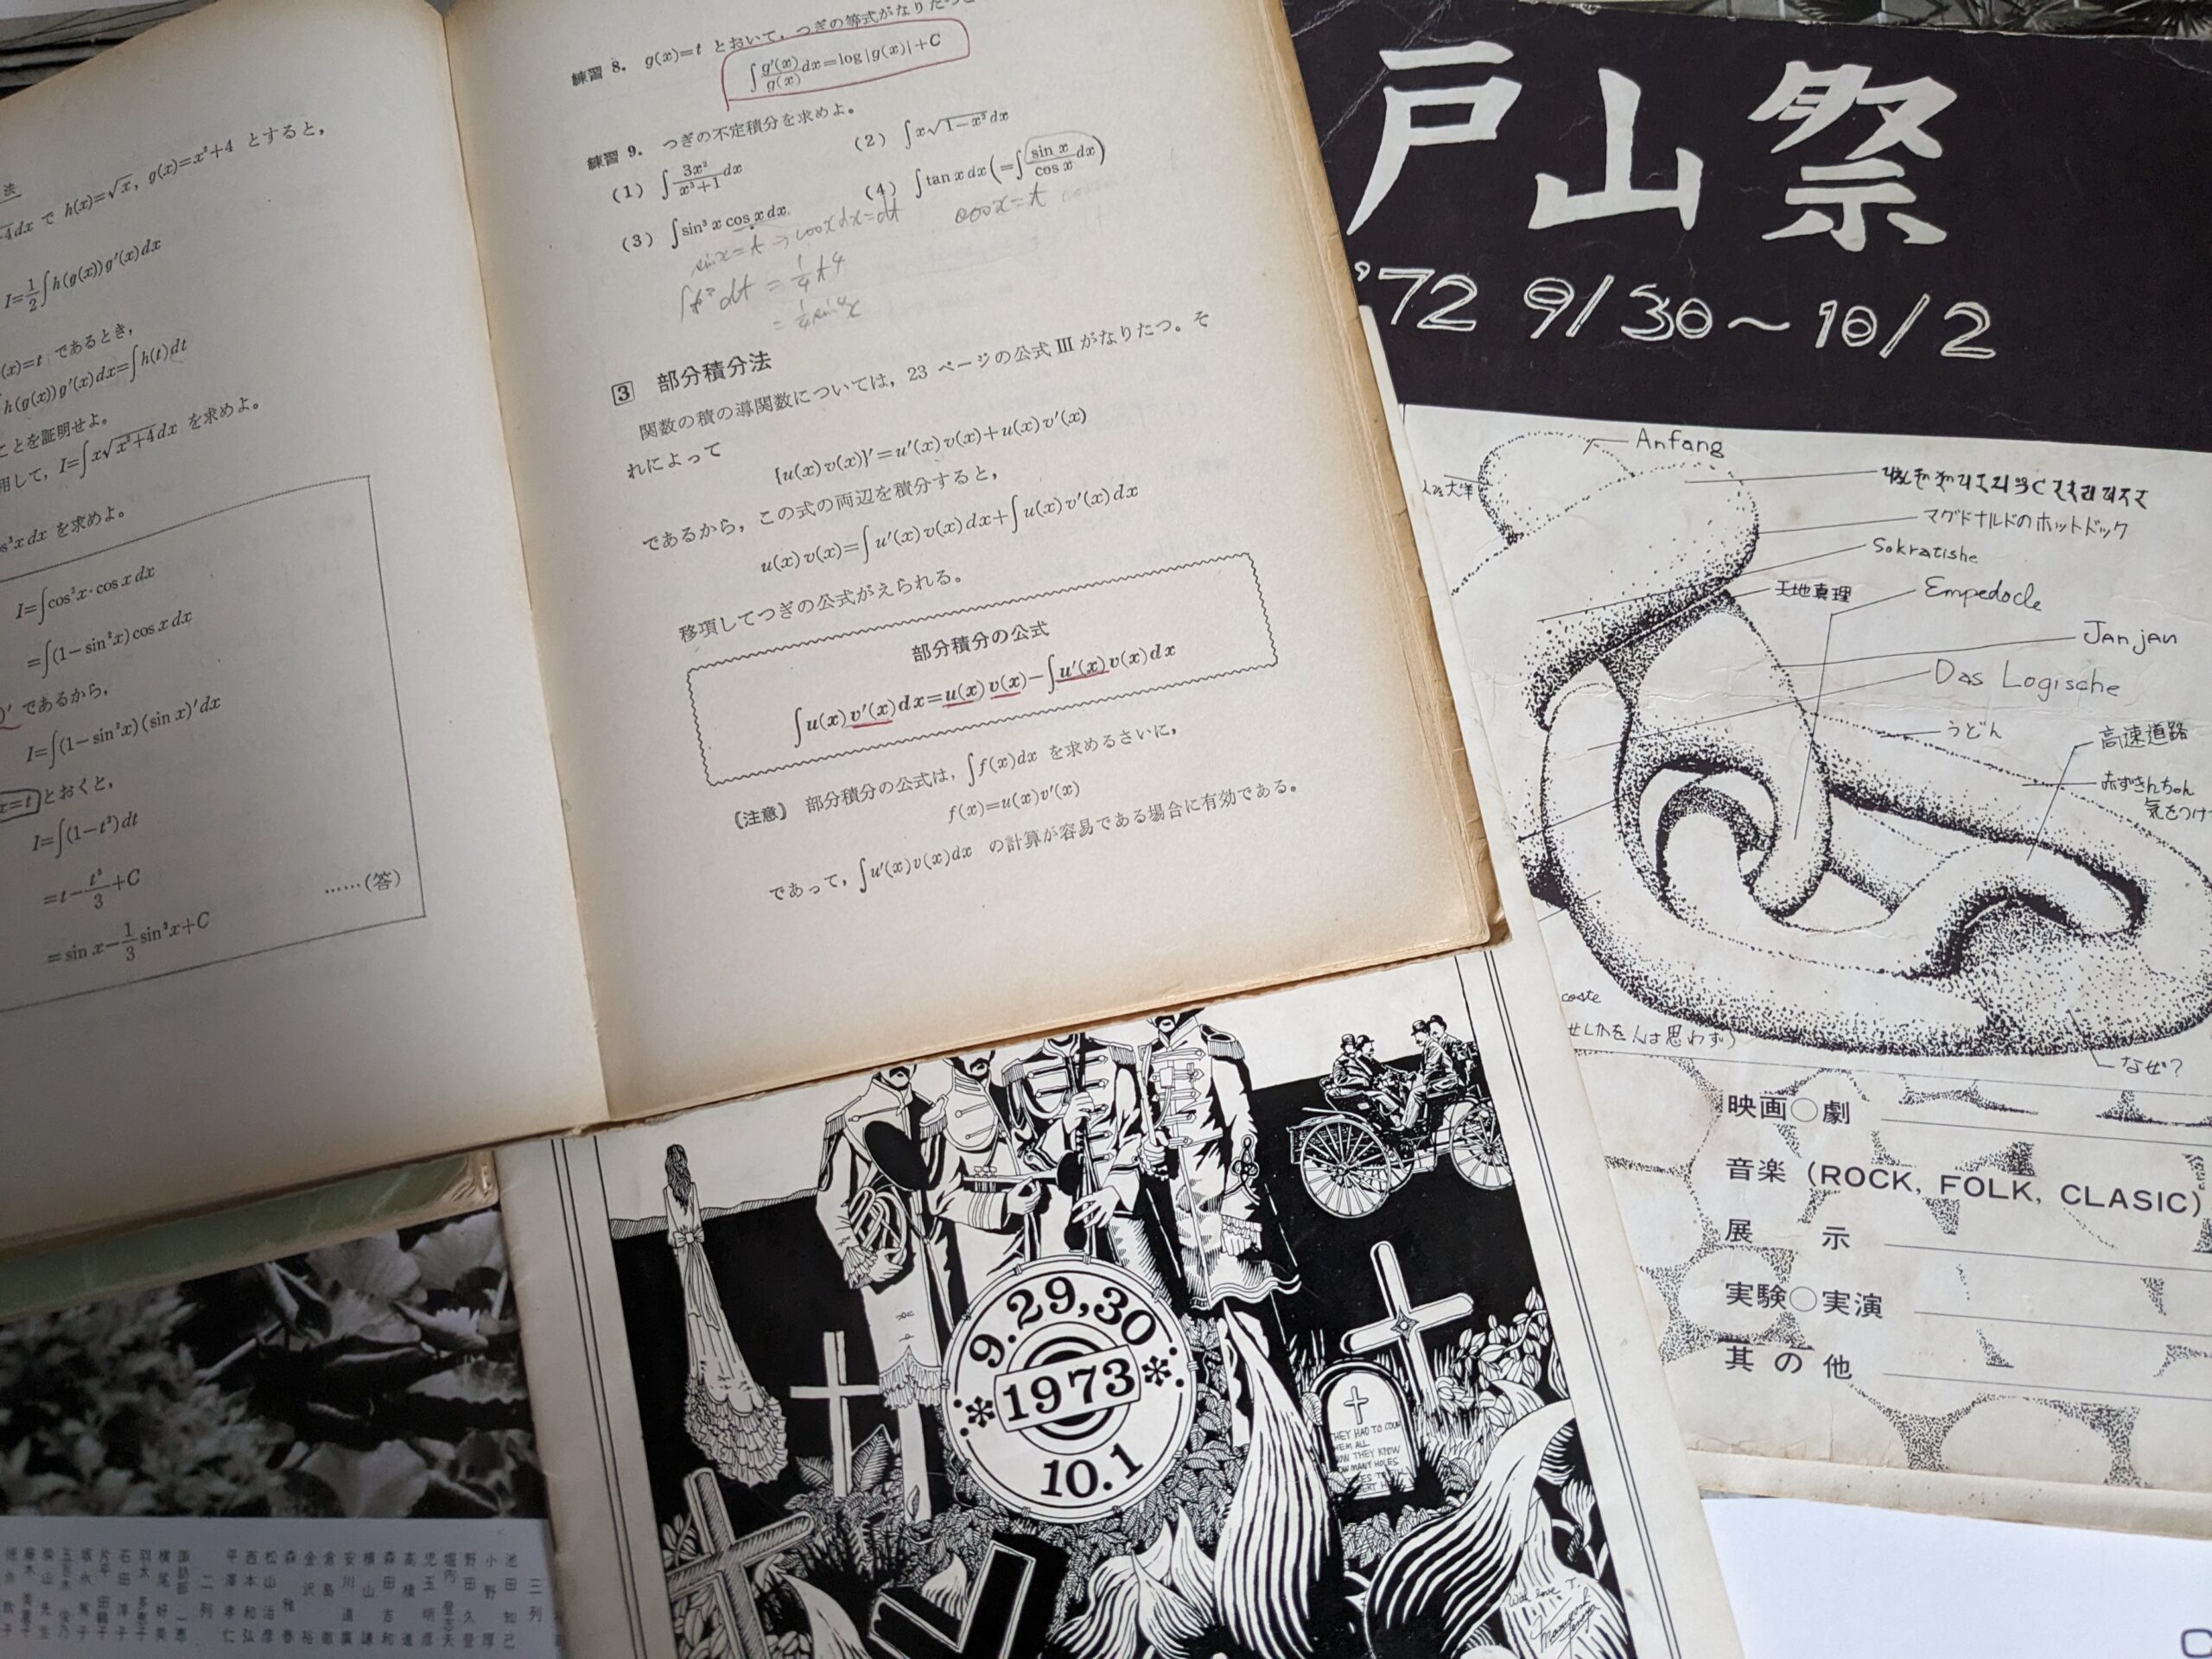 法
4dx で h(x)=√x, g(x)=x²+4 とすると,
I=1/2∫h(g(x))g′(x)dx
(x)=t であるとき,
h(g(x))g′(x)dx=∫h(t)dt
ことを証明せよ。
用して, I=∫x√x²+4dx を求めよ。
s³xdx を求めよ。
I=∫cos²x·cosxdx
=∫(1−sin²x)cosxdx
)′ であるから,
I=∫(1−sin²x)(sinx)′dx
x=t とおくと,
I=∫(1−t²)dt
=t−t³/3+C
=sinx−1/3sin³x+C ……(答)
練習 8. g(x)=t とおいて, つぎの等式がなりたつこと
∫g′(x)/g(x)dx=log|g(x)|+C
練習 9. つぎの不定積分を求めよ。
(1) ∫3x²/x³+1dx (2) ∫x√1−x²dx
(3) ∫sin³xcosxdx (4) ∫tanxdx(=∫sinx/cosxdx)
sinx=t → cosxdx=dt cosx=t
∫t³dt = 1/4t⁴
= 1/4sin⁴x
3 部分積分法
関数の積の導関数については, 23 ページの公式 III がなりたつ。そ
れによって
{u(x)v(x)}′=u′(x)v(x)+u(x)v′(x)
であるから, この式の両辺を積分すると,
u(x)v(x)=∫u′(x)v(x)dx+∫u(x)v′(x)dx
移項してつぎの公式がえられる。
部分積分の公式
∫u(x)v′(x)dx=u(x)v(x)−∫u′(x)v(x)dx
〔注意〕 部分積分の公式は, ∫f(x)dx を求めるさいに,
f(x)=u(x)v′(x)
であって, ∫u′(x)v(x)dx の計算が容易である場合に有効である。
戸山祭
'72 9/30〜10/2
Anfang
マグドナルドのホットドック
Sokratishe
天地真理
Empedocle
Janjan
Das Logische
うどん
高速道路
赤ずきんちゃん
気をつけ
coste
せしかを人は思わず)
なぜ?
映画○劇
音楽 (ROCK, FOLK, CLASIC)
展 示
実験○実演
其の他
9.29,30
1973
10.1
THEY HAD TO COUN
HEM ALL
OW THEY KNOW
OW MANY HOLES
With love T.
三列
池田知己
小野厚
野田久登
堀内登志夫
児玉明彦
高橋進
森田吉和
横山謙
安川道廣
倉島
金沢裕
森雅春
松山治彦
西本和弘
平澤孝仁
二列
諏訪部一恵
横尾好美
石田洋子